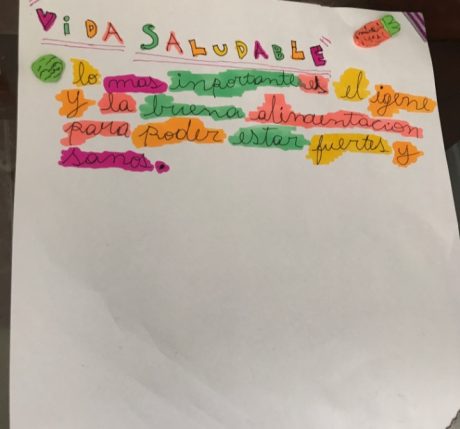 "VIDA SALUDABLE"
lo mas inportante es el igene
y la buena alimentacion
para poder estar fuertes y
sanos.